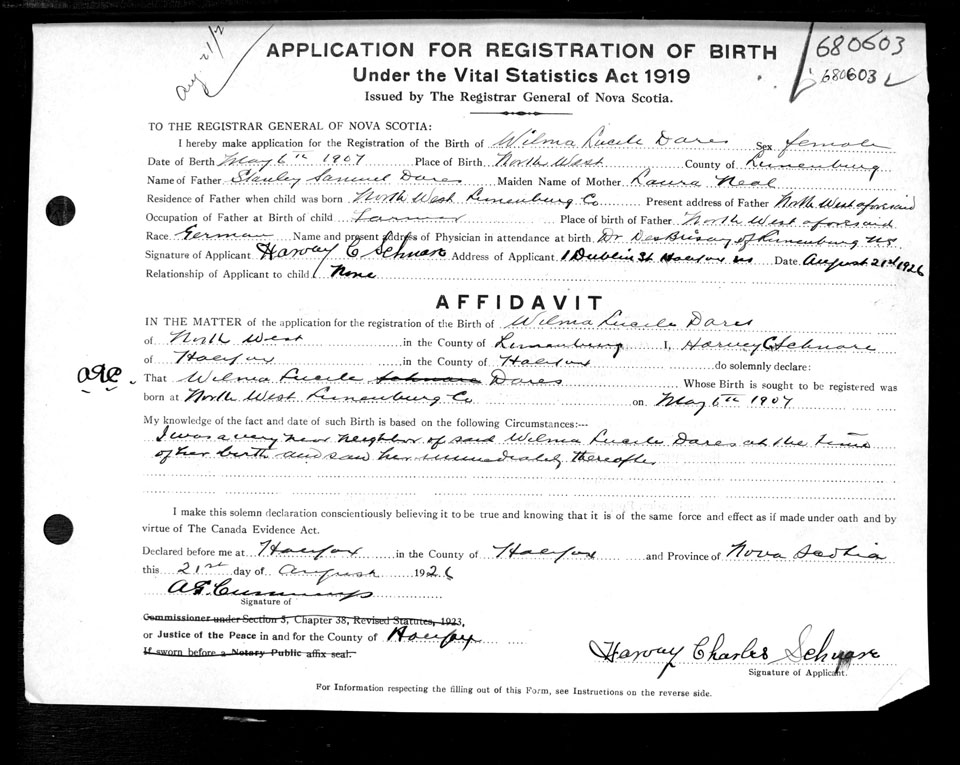 Aug 21/2
680603
680603
APPLICATION FOR REGISTRATION OF BIRTH
Under the Vital Statistics Act 1919
Issued by The Registrar General of Nova Scotia.
TO THE REGISTRAR GENERAL OF NOVA SCOTIA:
I hereby make application for the Registration of the Birth of Wilma Lucile Dares Sex female
Date of Berth May 6th 1907 Place of Birth North West County of Lunenburg
Name of Father Stanley Samuel Dares Maiden Name of Mother Laura Neal
Residence of Father when child was born North West Lunenburg Co Present address of Father North West aforesaid
Occupation of Father at Birth of child Farmer Place of birth of Father North West aforesaid
Race German Name and present address of Physician in attendance at birth Dr DesBrisay of Lunenburg NS
Signature of Applicant Harvey C Schnare Address of Applicant 1 Dublin St Halifax NS Date August 21st 1926
Relationship of Applicant to child None
AFFIDAVIT
IN THE MATTER of the application for the registration of the Birth of Wilma Lucile Dares
of North West in the County of Lunenburg I, Harvey C Schnare
of Halifax in the County of Halifax do solemnly declare:
That Wilma Lucile Schnare Dares Whose Birth is sought to be registered was
born at North West Lunenburg Co on May 6th 1907
My knowledge of the fact and date of such Birth is based on the following Circumstances:—
I was a very near neighbor of said Wilma Lucile Dares at the time
of her birth and saw her immediately thereafter
I make this solemn declaration conscientiously believing it to be true and knowing that it is of the same force and effect as if made under oath and by
virtue of The Canada Evidence Act.
Declared before me at Halifax in the County of Halifax and Province of Nova Scotia
this 21st day of August 1926
A E Cummings
Signature of
Commissioner under Section 5, Chapter 38, Revised Statutes, 1923,
or Justice of the Peace in and for the County of Halifax
If sworn before a Notary Public affix seal.
Harvey Charles Schnare
Signature of Applicant.
For Information respecting the filling out of this Form, see Instructions on the reverse side.